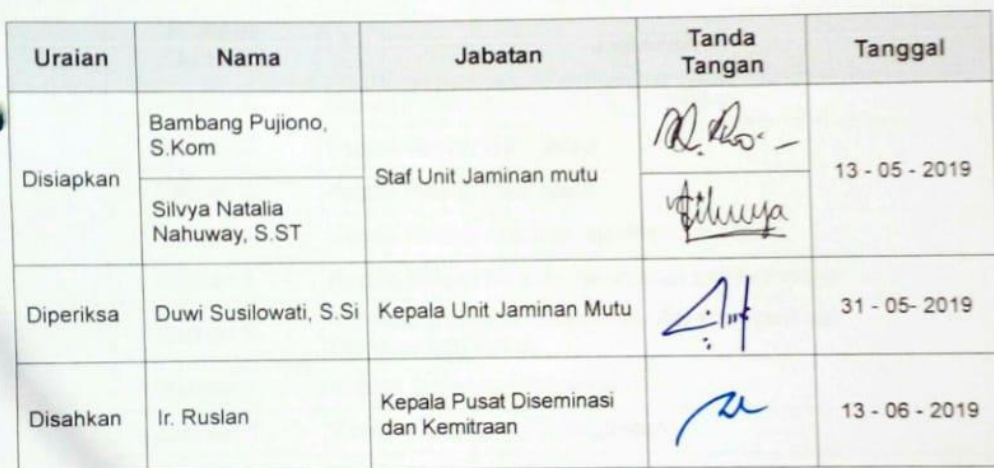 Uraian
Nama
Jabatan
Tanda
Tangan
Tanggal
Disiapkan
Bambang Pujiono,
S.Kom
Silvya Natalia
Nahuway, S.ST
Staf Unit Jaminan mutu
13 - 05 - 2019
Diperiksa
Duwi Susilowati, S.Si
Kepala Unit Jaminan Mutu
31 - 05- 2019
Disahkan
Ir. Ruslan
Kepala Pusat Diseminasi
dan Kemitraan
13 - 06 - 2019